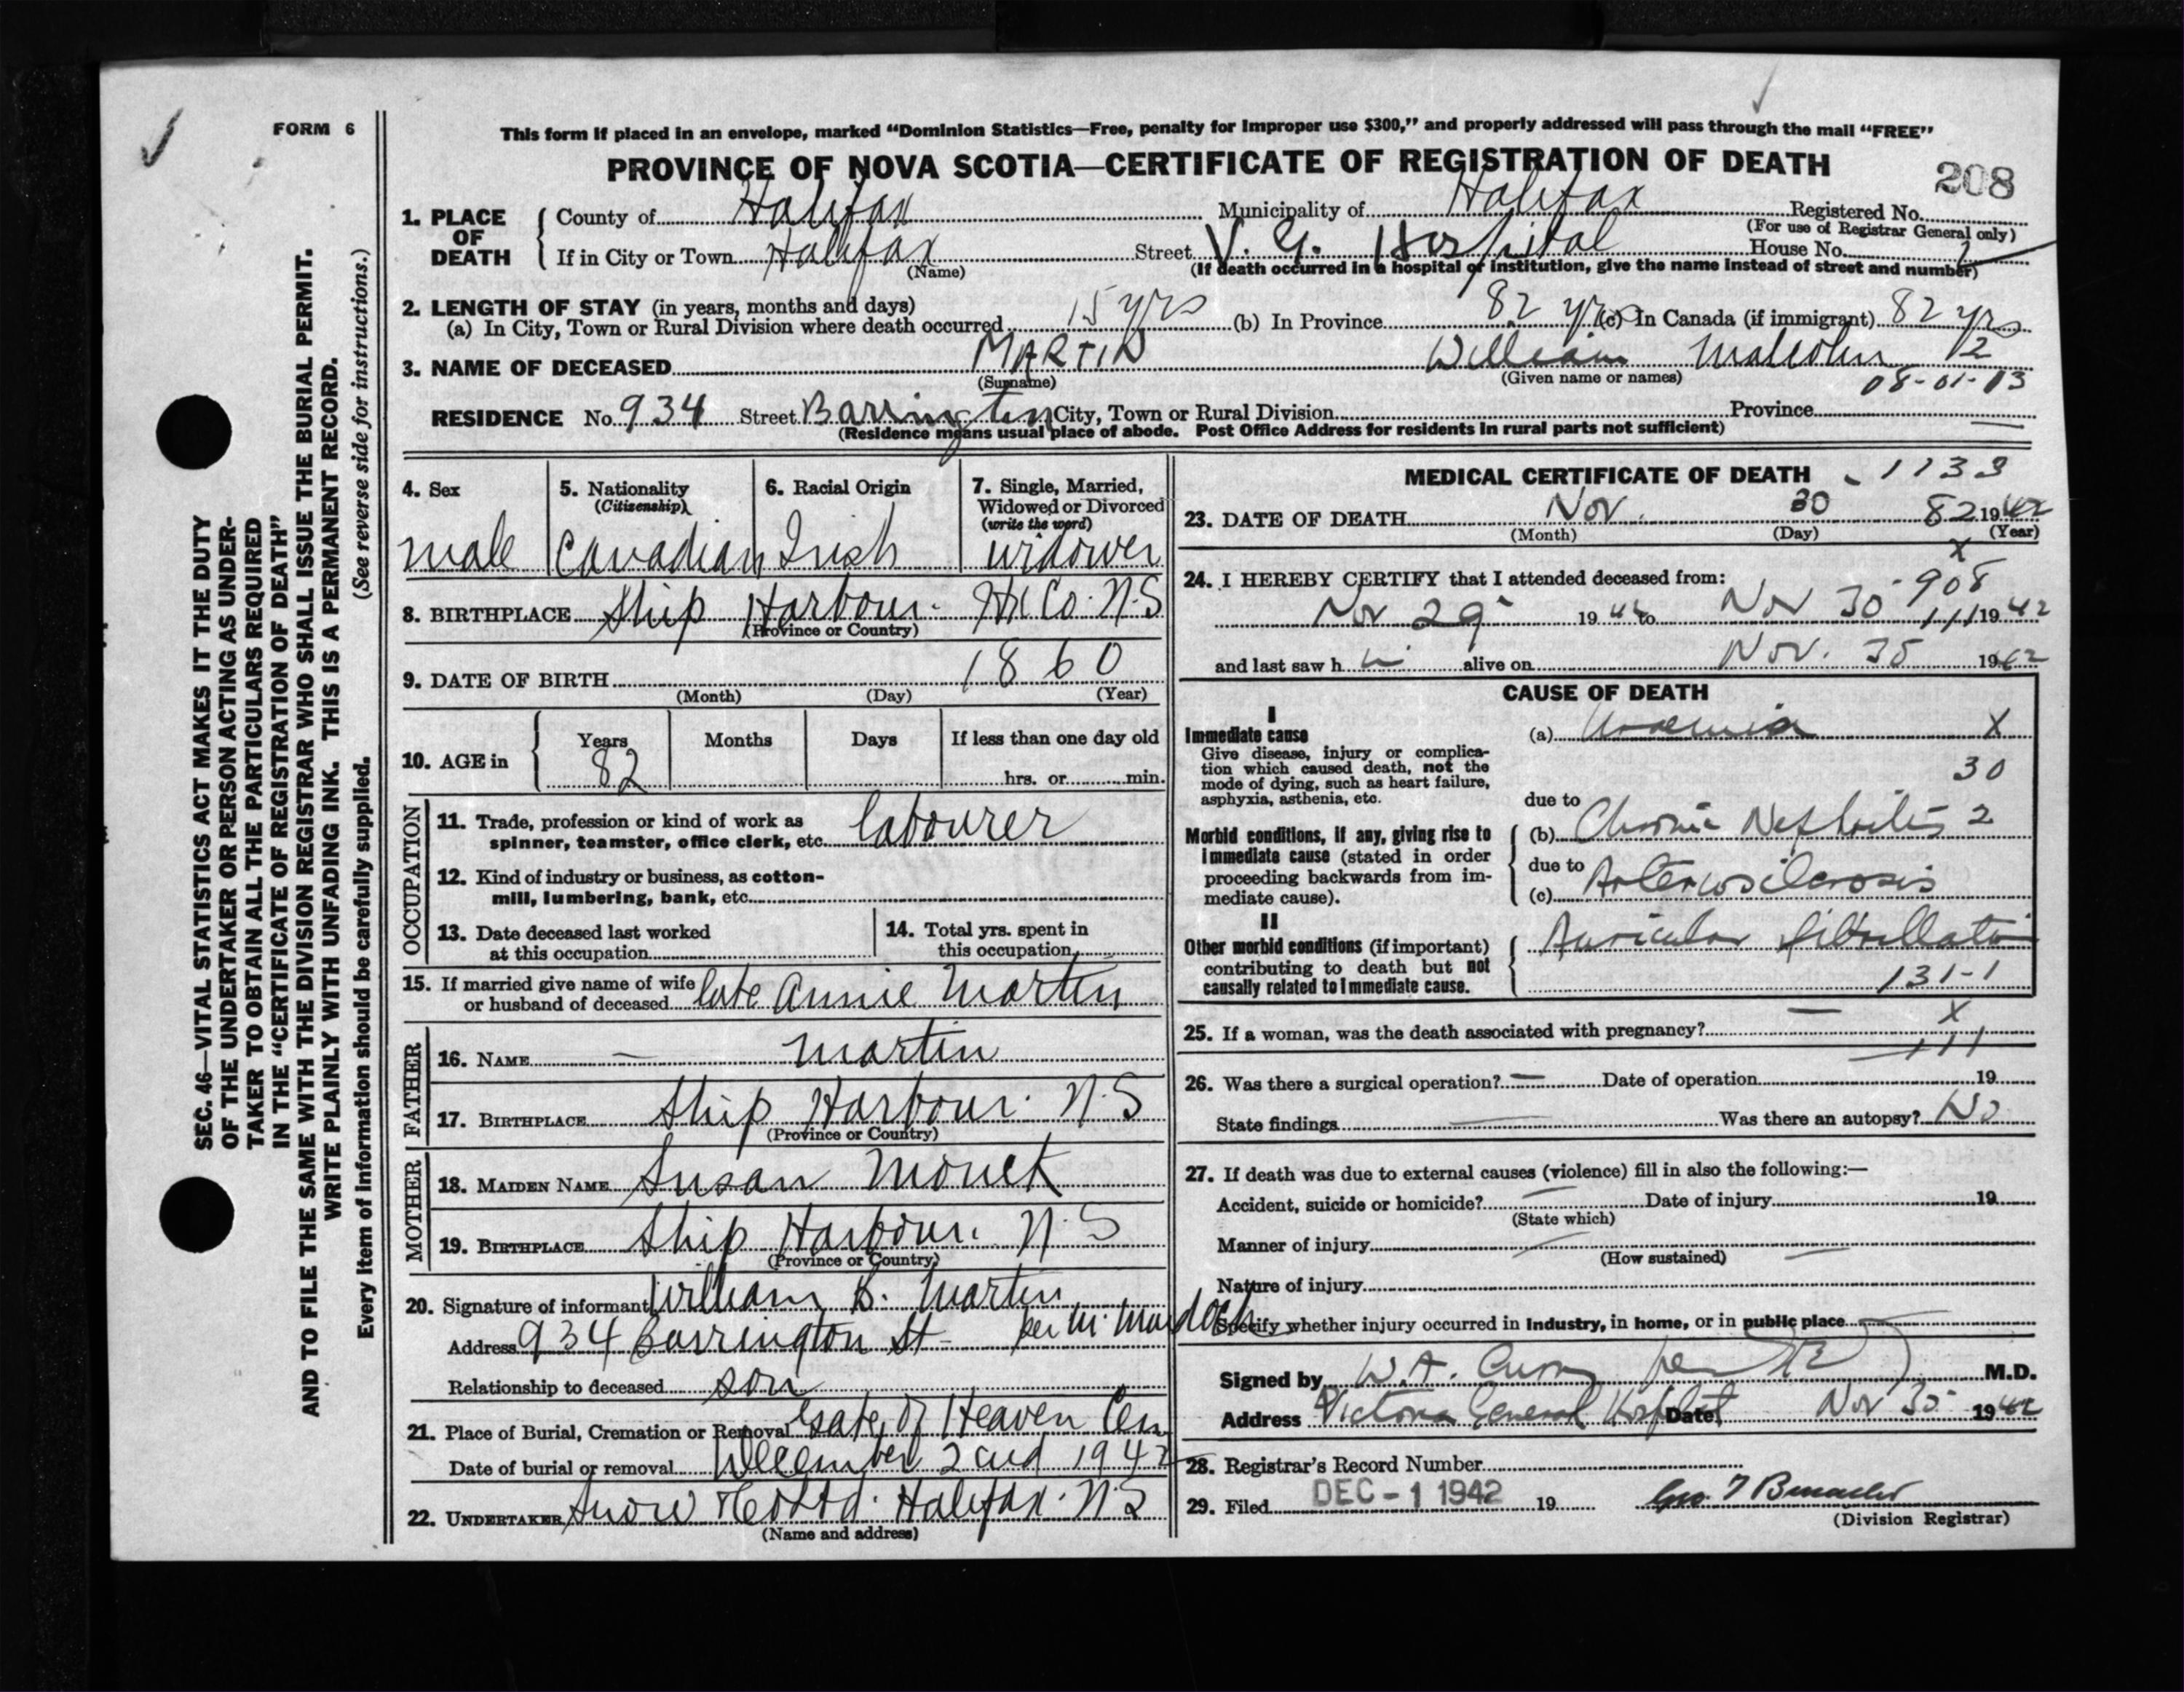 FORM 6
This form if placed in an envelope, marked “Dominion Statistics—Free, penalty for improper use $300,” and properly addressed will pass through the mail “FREE”
PROVINCE OF NOVA SCOTIA—CERTIFICATE OF REGISTRATION OF DEATH
208
1. PLACE OF DEATH
County of Halifax Municipality of Halifax Registered No.
(For use of Registrar General only)
If in City or Town Halifax Street V. G. Hospital House No.
(Name) (If death occurred in a hospital or institution, give the name instead of street and number)
2. LENGTH OF STAY (in years, months and days)
(a) In City, Town or Rural Division where death occurred 15 yrs (b) In Province 82 yrs (c) In Canada (if immigrant) 82 yrs
3. NAME OF DECEASED MARTIN William Malcolm 12
(Surname) (Given name or names) 08-01-13
RESIDENCE No. 934 Street Barrington City, Town or Rural Division Province
(Residence means usual place of abode. Post Office Address for residents in rural parts not sufficient)
4. Sex
male
5. Nationality
(Citizenship)
Canadian
6. Racial Origin
Irish
7. Single, Married,
Widowed or Divorced
(write the word)
widower
8. BIRTHPLACE Ship Harbour. Hx Co. N.S
(Province or Country)
9. DATE OF BIRTH 1860
(Month) (Day) (Year)
10. AGE in
Years Months Days If less than one day old
82 hrs. or min.
OCCUPATION
11. Trade, profession or kind of work as
spinner, teamster, office clerk, etc. labourer
12. Kind of industry or business, as cotton-
mill, lumbering, bank, etc.
13. Date deceased last worked
at this occupation
14. Total yrs. spent in
this occupation
15. If married give name of wife
or husband of deceased late Annie Martin
FATHER
16. NAME — Martin
17. BIRTHPLACE Ship Harbour. N.S
(Province or Country)
MOTHER
18. MAIDEN NAME Susan Monck
19. BIRTHPLACE Ship Harbour. N.S
(Province or Country)
20. Signature of informant William B. Martin
Address 934 Barrington St per M. Murdoch
Relationship to deceased son
21. Place of Burial, Cremation or Removal Gate of Heaven Cem
Date of burial or removal December 2nd 1942
22. UNDERTAKER Snow & Co Ltd. Halifax. N.S
(Name and address)
MEDICAL CERTIFICATE OF DEATH 1133
23. DATE OF DEATH Nov. 30 82 1942
(Month) (Day) (Year)
x
24. I HEREBY CERTIFY that I attended deceased from: 908
Nov 29 1942 to Nov 30 111 1942
and last saw h im alive on Nov. 30 1942
CAUSE OF DEATH
I
Immediate cause
Give disease, injury or complica-
tion which caused death, not the
mode of dying, such as heart failure,
asphyxia, asthenia, etc.
(a) Uraemia X
30
due to
Morbid conditions, if any, giving rise to
immediate cause (stated in order
proceeding backwards from im-
mediate cause).
(b) Chronic Nephritis 2
due to
(c) Arteriosclerosis
II
Other morbid conditions (if important)
contributing to death but not
causally related to immediate cause.
Auricular fibrillation
131-1
25. If a woman, was the death associated with pregnancy? — X
111
26. Was there a surgical operation? — Date of operation 19
State findings — Was there an autopsy? No
27. If death was due to external causes (violence) fill in also the following:—
Accident, suicide or homicide? — Date of injury 19
(State which)
Manner of injury
(How sustained)
Nature of injury
Specify whether injury occurred in industry, in home, or in public place
Signed by W.A. Curry per M.D.
Address Victoria General Hospital Date Nov 30 1942
28. Registrar's Record Number
29. Filed DEC - 1 1942 19
(Division Registrar)
SEC. 46—VITAL STATISTICS ACT MAKES IT THE DUTY
OF THE UNDERTAKER OR PERSON ACTING AS UNDER-
TAKER TO OBTAIN ALL THE PARTICULARS REQUIRED
IN THE “CERTIFICATE OF REGISTRATION OF DEATH”
AND TO FILE THE SAME WITH THE DIVISION REGISTRAR WHO SHALL ISSUE THE BURIAL PERMIT.
WRITE PLAINLY WITH UNFADING INK. THIS IS A PERMANENT RECORD.
Every item of information should be carefully supplied. (See reverse side for instructions.)